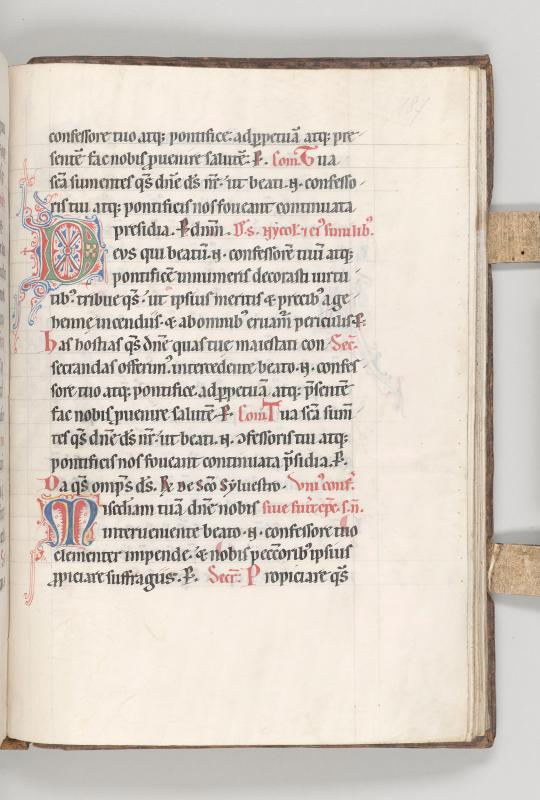 187
confessore tuo atq; pontifice. ad ꝑpetuā atq; pre
sentē fac nobis ꝓuenire salutē. P̄. Com̄. Tua
scā sumentes qs̄ dn̄e ds̄ nr̄. ut beati .N. confesso
ris tui atq; pontificis nos foueant continuata
presidia. P̄. dn̄m̄.
Deus qui beatū .N. confessorē tuū atq;
pontificē innumeris decorasti uirtu
tibꝰ. tribue qs̄. ut ipsius meritis & precibꝰ a ge
henne incendiis. & ab omnibꝰ eruam̄ periculis. P̄.
Has hostias qs̄ dn̄e quas tue maiestati con Secr̄.
secrandas offerimꝰ. intercedente beato .N. confes
sore tuo atq; pontifice ad ꝑpetuā atq; p̄sentē
fac nobis ꝓuenire salutē. P̄. Com̄. Tua scā sum̄
tes qs̄ dn̄e ds̄ nr̄. ut beati .N. ꝯfessoris tui atq;
pontificis nos foueant continuata p̄sidia. P̄.
Da qs̄ omp̄s ds̄. Re de Sco Syluestro. Vniꝰ conf̄.
Misc̄diam tuā dn̄e nobis siue fuit ep̄c. s. n̄.
interueniente beato .N. confessore tuo
clementer impende. & nobis peccōribꝰ ipsius
ꝓpiciare suffragiis. P̄. Secr̄. Propiciare qs̄